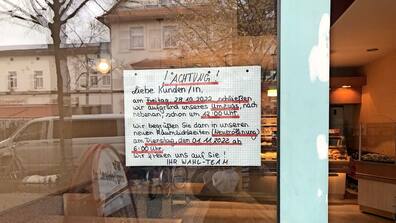 ! ACHTUNG !
Liebe Kunden/in,
am Freitag, 28.10.2022 schließen
wir aufgrund unseres Umzugs, nach
nebenan, schon um 12:00 Uhr.
Wir begrüßen Sie dann in unseren
neuen Räumlichkeiten (Neueröffnung)
am Dienstag, den 01.11.2022 ab
6:00 Uhr.
Wir freuen uns auf Sie!
IHR WAHL-TEAM